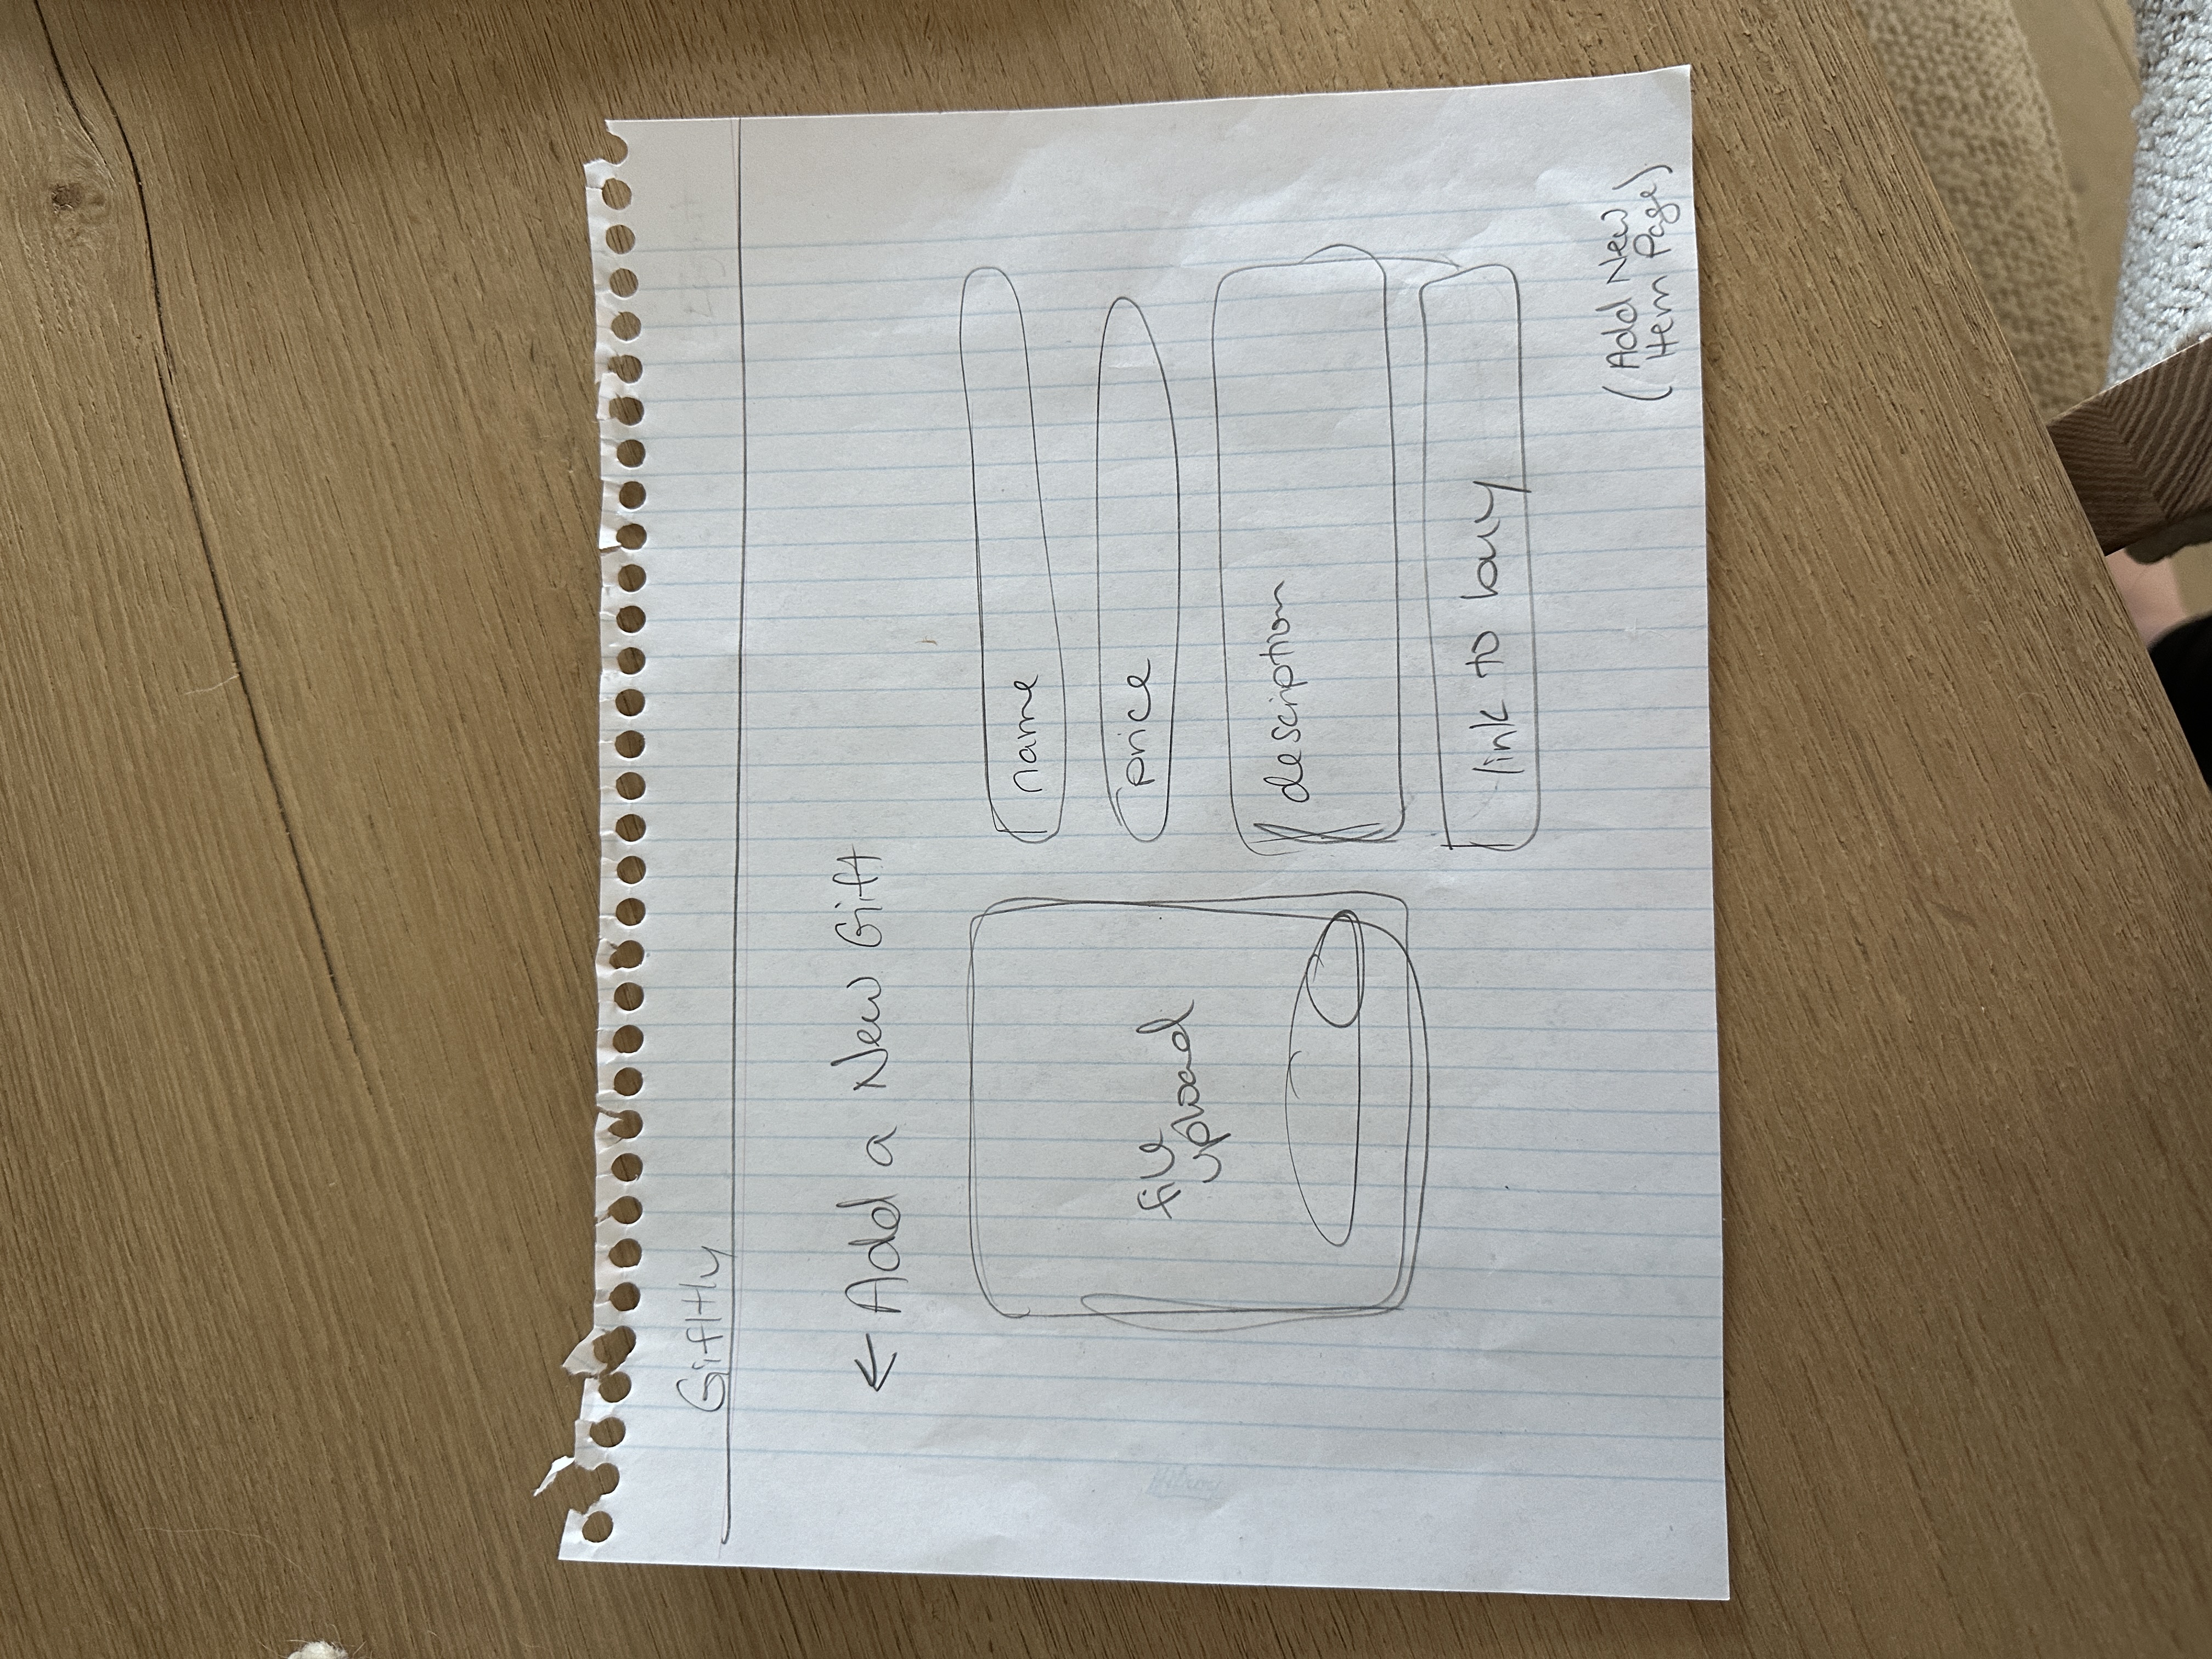 Gifltly
Logout
← Add a New Gift
file
upload
name
price
description
link to buy
(Add New
Item Page)